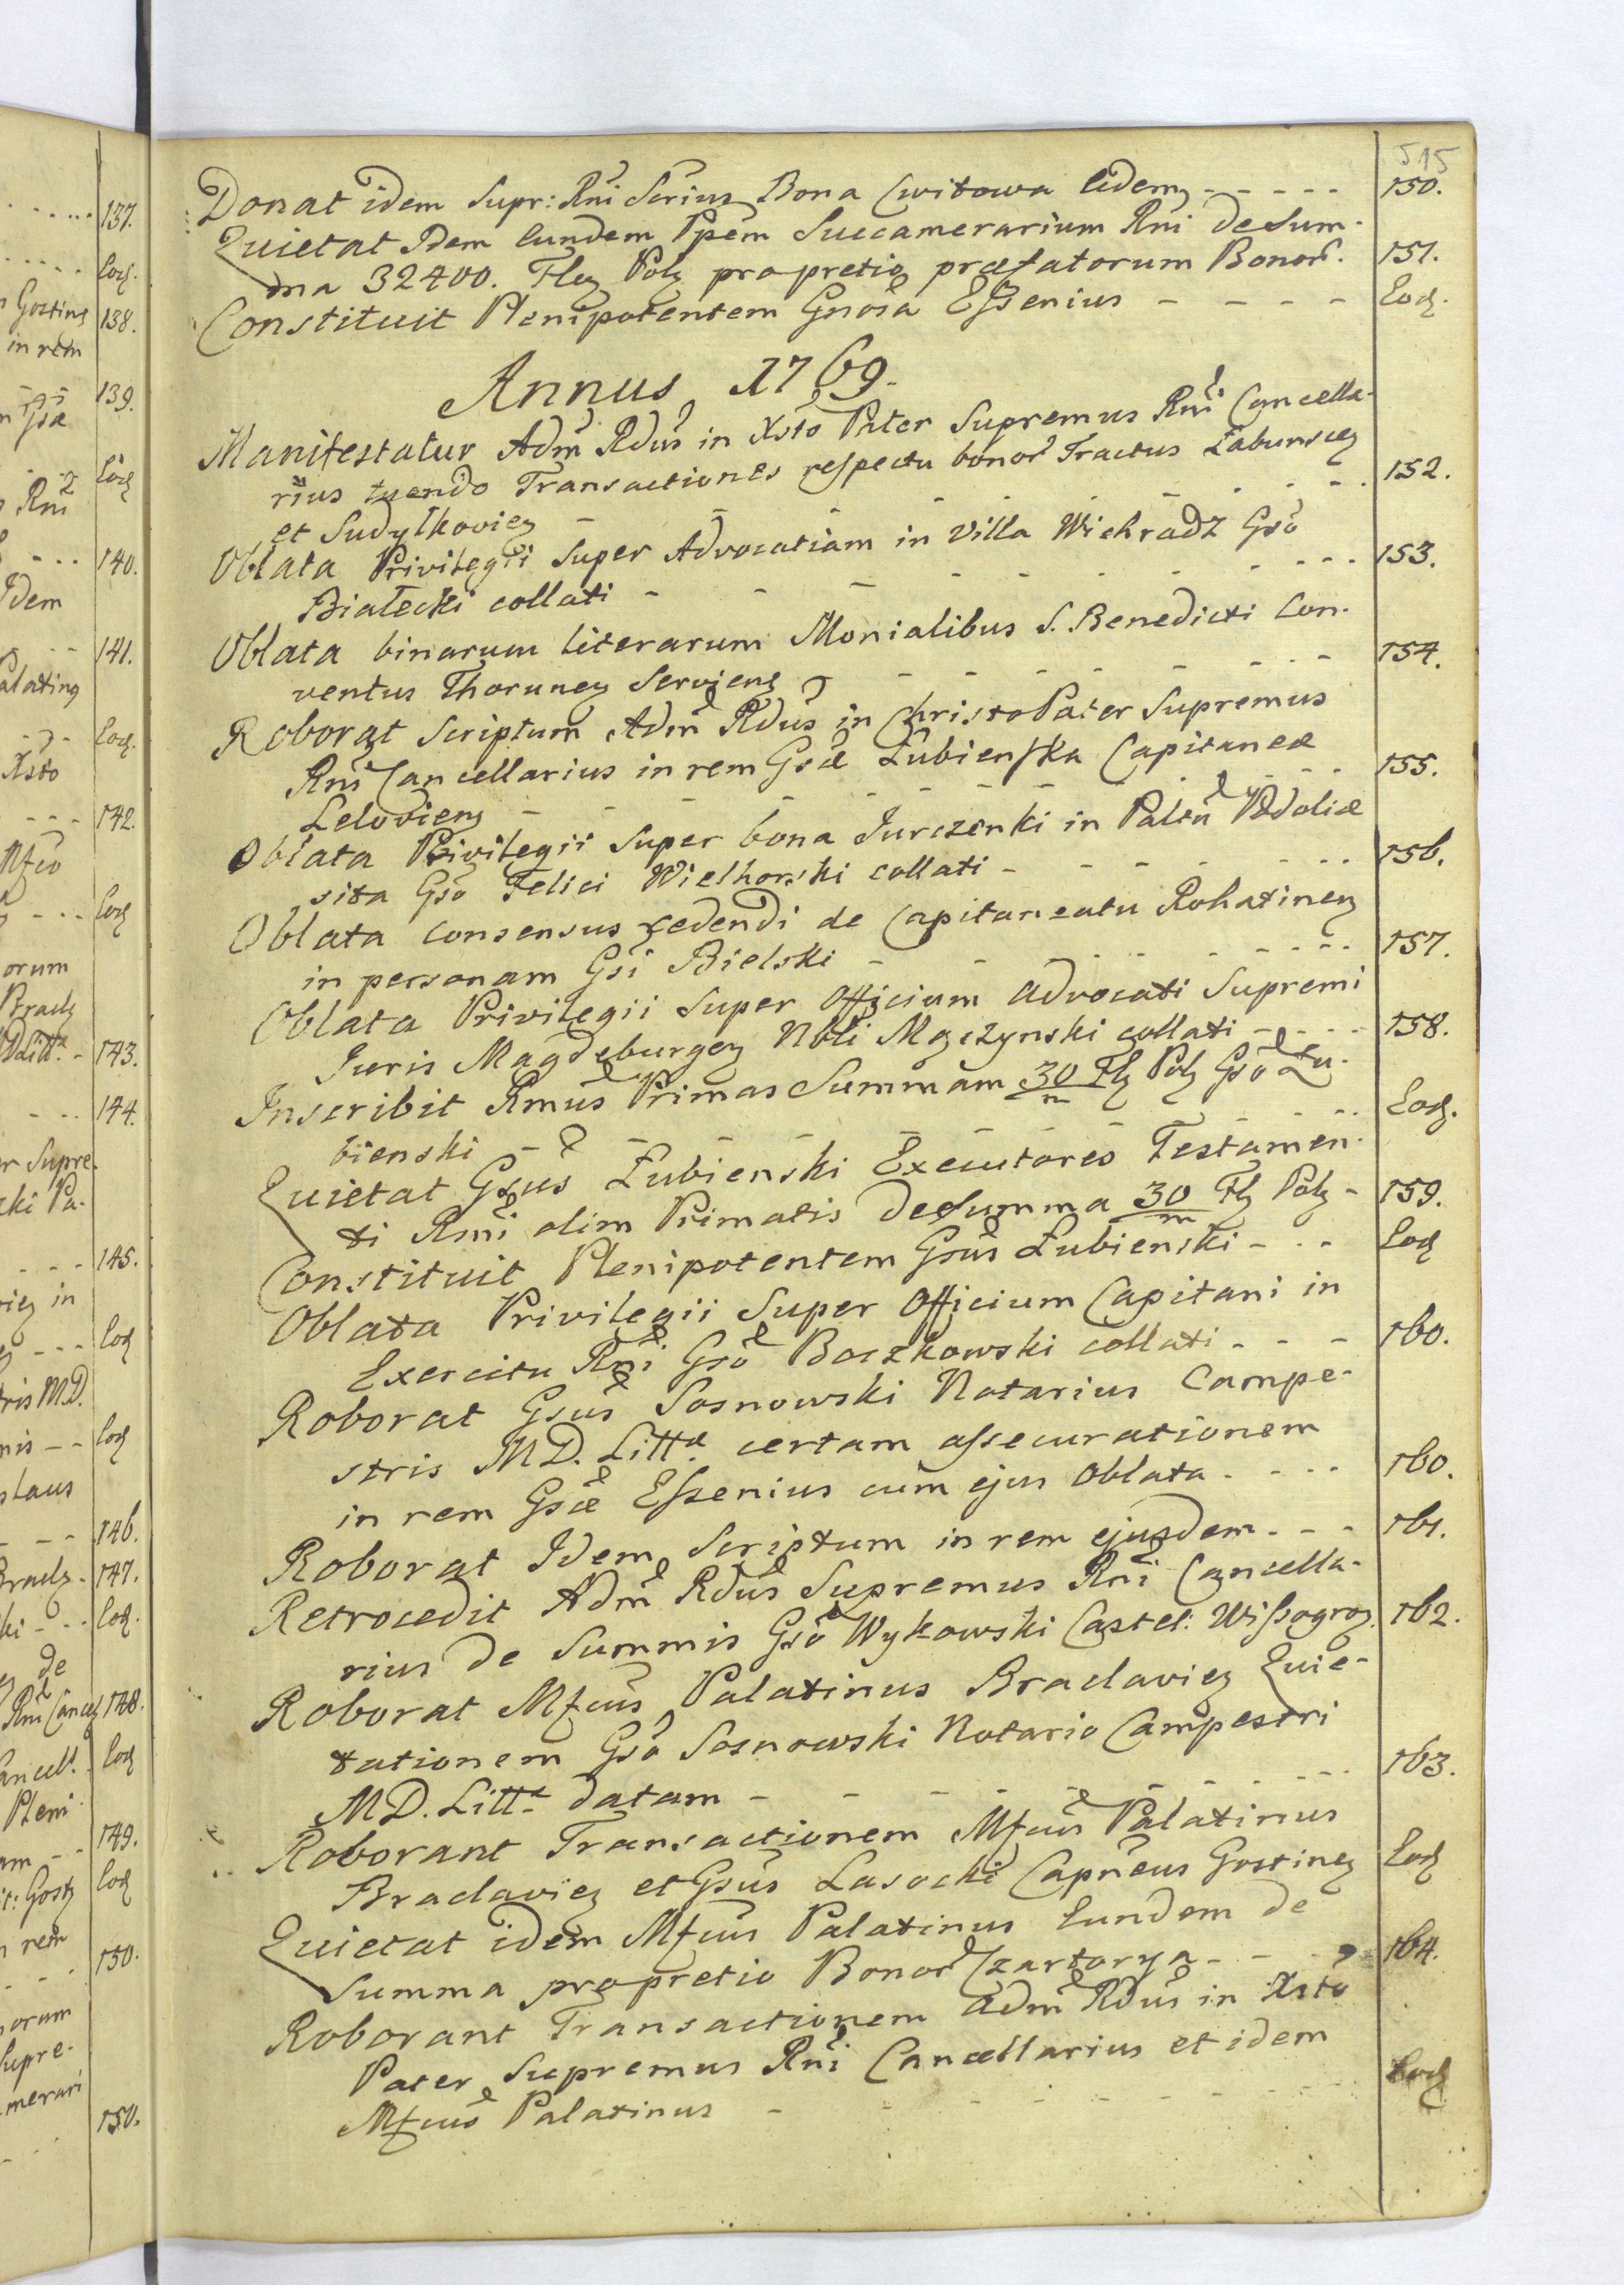 515
Donat idem Supr: Rñi Serius Bona Cwitowa Eidem - - - - - 150.
Quietat Idem Eundem Ppem Succamerarium Rñi de Sum-
ma 32400. Flor Pol pro pretio præfatorum Bonor. 151.
Constituit Plenipotentem Gnosa Essenius - - - - Eod.
Annus 1769.
Manifestatur Adm̃ Rdus in Xsto Pater Supremus Rñi Cancella-
rius tuendo Transactiones respectu bonor Tractus Łabunscen
et Sudyłkovien - - - - 152.
Oblata Privilegii Super Advocatiam in Villa Wichradz Gso
Białecki collati - - - - - 153.
Oblata binarum literarum Monialibus S. Benedicti Con-
ventus Thorunen Serviens - - - - 154.
Roborat Scriptum Adm̃ Rdus in Christo Pater Supremus
Rñi Cancellarius in rem Gsæ Łubienska Capitaneæ
Lelovien - - - - - 155.
Oblata Privilegii Super bona Jurczenki in Paltu Podoliæ
sita Gso Felici Wielhorski collati - - - - 156.
Oblata consensus cedendi de Capitaneatu Rohatinen
in personam Gsi Bielski - - - - 157.
Oblata Privilegii Super Officium Advocati Supremi
Juris Magdeburgen Nbli Mączynski collati - - - - 158.
Inscribit Rmus Primas Summam 30/m Fl Pol Gso Łu-
bienski - - - - - Eod.
Quietat Gsus Łubienski Executores Testamen-
ti Rmi olim Primatis de Summa 30/m Fl Pol - 159.
Constituit Plenipotentem Gsus Łubienski - - - Eod
Oblata Privilegii Super Officium Capitani in
Exercitu Rñi Gso Boczkowski collati - - - 160.
Roborat Gsus Sosnowski Notarius Campe-
stris M.D. Litt. certam assecurationem
in rem Gsæ Essenius cum ejus Oblata - - - - 160.
Roborat Idem Scriptum in rem ejusdem - - - 161.
Retrocedit Adm̃ Rdus Supremus Rñi Cancella-
rius de Summis Gso Wykowski Castel: Wissogrog. 162.
Roborat Mfcus Palatinus Braclavien Quie-
tationem Gso Sosnowski Notario Campestri
M.D. Litt. datam - - - - - 163.
Roborant Transactionem Mfcus Palatinus
Braclavien et Gsus Lasocki Capneus Gostinen Eod
Quietat idem Mfcus Palatinus Eundem de
Summa pro pretio Bonor Czartorya - - - 164.
Roborant Transactionem Adm̃ Rdus in Xsto
Pater Supremus Rñi Cancellarius et idem
Mfcus Palatinus - - - - - Eod